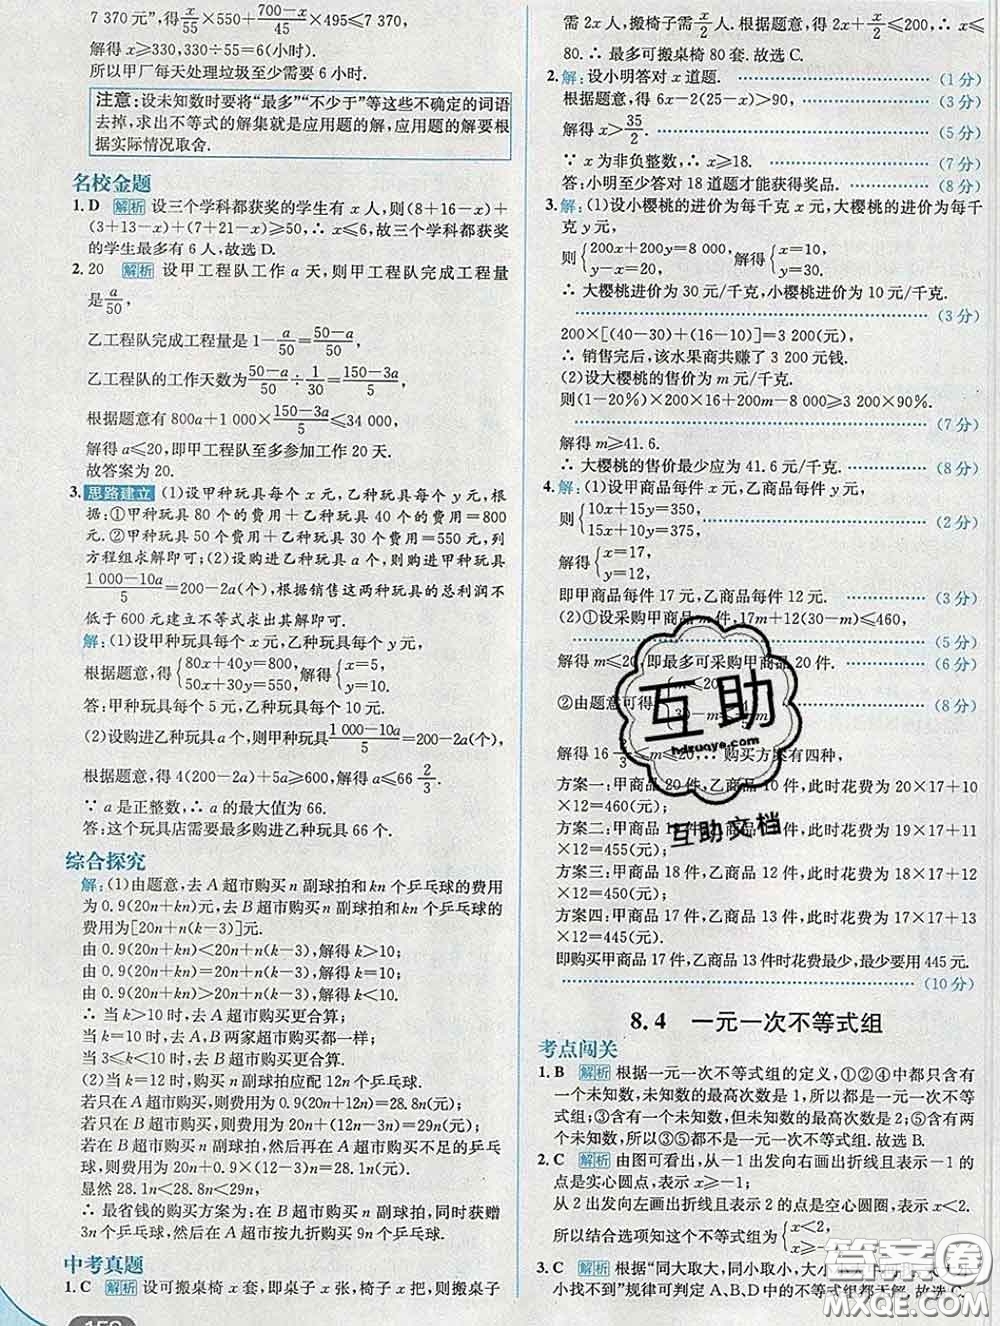 7 370元". 根据题意得 x/55×550+(700-x)/45×495≤7 370,
解得x≥330, 330÷55=6(小时).
所以甲厂每天处理垃圾至少需要6小时.
注意:设未知数时要将“最多”“不少于”等这些不确定的词语
去掉,求出不等式的解集就是应用题的解,应用题的解要根
据实际情况取舍.
名校金题
1. D 解析 设三个学科都获奖的学生有x人,则(8+16-x)+
(3+13-x)+(7+21-x)≥50, ∴x≤6,故三个学科都获奖
的学生最多有6人,故选D.
2. 20 解析 设甲工程队工作a天,则甲工程队完成工程量
是a/50,
乙工程队完成工程量是1-a/50=(50-a)/50,
乙工程队的工作天数为(50-a)/50÷1/30=(150-3a)/5,
根据题意有800a+1 000×(150-3a)/5≤34 000,
解得a≤20,即甲工程队至多参加工作20天.
故答案为20.
3. 思路建立 (1)设甲种玩具每个x元,乙种玩具每个y元,根
据:①甲种玩具80个的费用+乙种玩具40个的费用=800
元.②甲种玩具50个费用+乙种玩具30个费用=550元,列
方程组求解即可;(2)设购进乙种玩具a个,则购进甲种玩具
(1 000-10a)/5=200-2a(个),根据销售这两种玩具的总利润不
低于600元建立不等式求出其解即可.
解:(1)设甲种玩具每个x元,乙种玩具每个y元,
根据题意得{80x+40y=800, 50x+30y=550, 解得{x=5, y=10.
答:甲种玩具每个5元,乙种玩具每个10元.
(2)设购进乙种玩具a个,则甲种玩具(1 000-10a)/5=200-2a(个),
根据题意得4(200-2a)+5a≥600,解得a≤66 2/3.
∵a是正整数,∴a的最大值为66.
答:这个玩具店需要最多购进乙种玩具66个.
综合探究
解:(1)由题意,去A超市购买n副球拍和kn个乒乓球的费用
为0.9(20n+kn)元,去B超市购买n副球拍和kn个乒乓球的
费用为[20n+n(k-3)]元.
由0.9(20n+kn)<20n+n(k-3),解得k>10;
由0.9(20n+kn)=20n+n(k-3),解得k=10;
由0.9(20n+kn)>20n+n(k-3),解得k<10.
∴当k>10时,去A超市购买更合算;
当k=10时,去A,B两家超市购买都一样;
当3≤k<10时,去B超市购买更合算.
(2)当k=12时,购买n副球拍应配12n个乒乓球.
若只在A超市购买,则费用为0.9(20n+12n)=28.8n(元);
若只在B超市购买,则费用为20n+(12n-3n)=29n(元);
若在B超市购买n副球拍,然后再在A超市购买不足的乒乓
球,则费用为20n+0.9×(12-3)n=28.1n(元).
显然28.1n<28.8n<29n,
∴最省钱的购买方案为:在B超市购买n副球拍,同时获赠
3n个乒乓球,然后在A超市按九折购买9n个乒乓球.
中考真题
1. C 解析 设可搬桌椅x套,即桌子x张,椅子x把,则搬桌子
需2x人,搬椅子需x/2人.根据题意,得2x+x/2≤200, ∴x≤
80. ∴最多可搬桌椅80套.故选C.
2. 解:设小明答对x道题. (1分)
根据题意,得6x-2(25-x)>90, (3分)
解得x>35/2. (5分)
∵x为非负整数,∴x≥18. (7分)
答:小明至少答对18道题才能获得奖品. (8分)
3. 解:(1)设小樱桃的进价为每千克x元,大樱桃的进价为每千
克y元,
则{200x+200y=8 000, y-x=20, 解得{x=10, y=30.
∴大樱桃进价为30元/千克,小樱桃进价为10元/千克.
(3分)
200×[(40-30)+(16-10)]=3 200(元).
∴销售完后,该水果商共赚了3 200元钱.
(2)设大樱桃的售价为m元/千克.
则(1-20%)×200×16+200m-8 000≥3 200×90%.
(7分)
解得m≥41.6.
∴大樱桃的售价最少应为41.6元/千克. (8分)
4. 解:(1)设甲商品每件x元,乙商品每件y元,
则{10x+15y=350, 15x+10y=375, (2分)
解得{x=17, y=12.
即甲商品每件17元,乙商品每件12元. (3分)
(2)①设采购甲商品m件,17m+12(30-m)≤460,
(5分)
解得m≤20,即最多可采购甲商品20件. (6分)
②由题意可得 (8分)
解得 m≤20, ∴购买方案有四种,
方案一:甲商品20件,乙商品10件,此时花费为20×17+10
×12=460(元);
方案二:甲商品19件,乙商品11件,此时花费为19×17+11
×12=455(元);
方案三:甲商品18件,乙商品12件,此时花费为18×17+12
×12=450(元);
方案四:甲商品17件,乙商品13件,此时花费为17×17+13
×12=445(元).
即购买甲商品17件,乙商品13件时花费最少,最少要用445元.
(10分)
8.4 一元一次不等式组
考点闯关
1. B 解析 根据一元一次不等式组的定义,①②④中都只含有
一个未知数,未知数的最高次数是1,所以都是一元一次不等
式组;③含有一个未知数,但未知数的最高次数是2;⑤含有两
个未知数,所以③⑤都不是一元一次不等式组.故选B.
2. C 解析 由图可看出,从-1向右画出折线且表示-1的点
是实心圆点,表示x≥-1;
从2出发向左画出折线且表示2的点是空心圆圈,表示x<2,
所以可以结合选项知C:不等式组{x<2, x≥-1
3. C 解析 根据“同大取大,同小取小,大小小大中间找,大大小
小找不到”规律可判定A、B、D中的不等式组都无解.故选C.
互助
hdzuoye.com
互助文档
答案圈
MXQE.COM